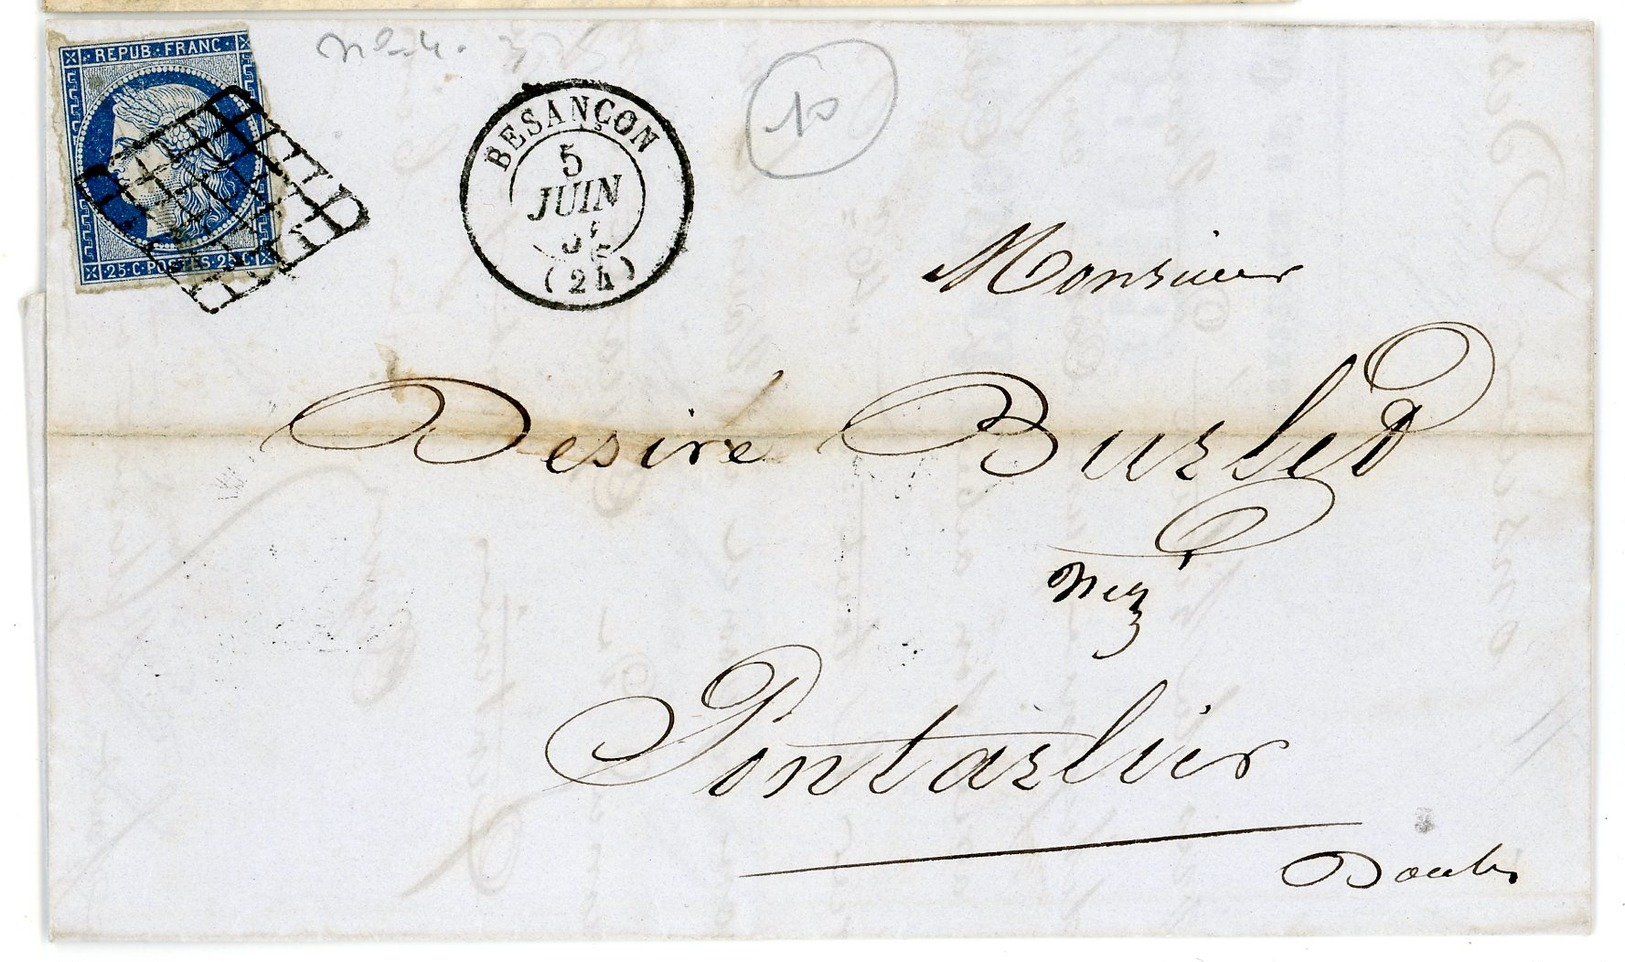 REPUB·FRANC·
25·C·POSTES·25·C
nº 4.
BESANÇON
5
JUIN
(24)
10
Monsieur
Desiré Burlet
Neg
Pontarlier
Doubs